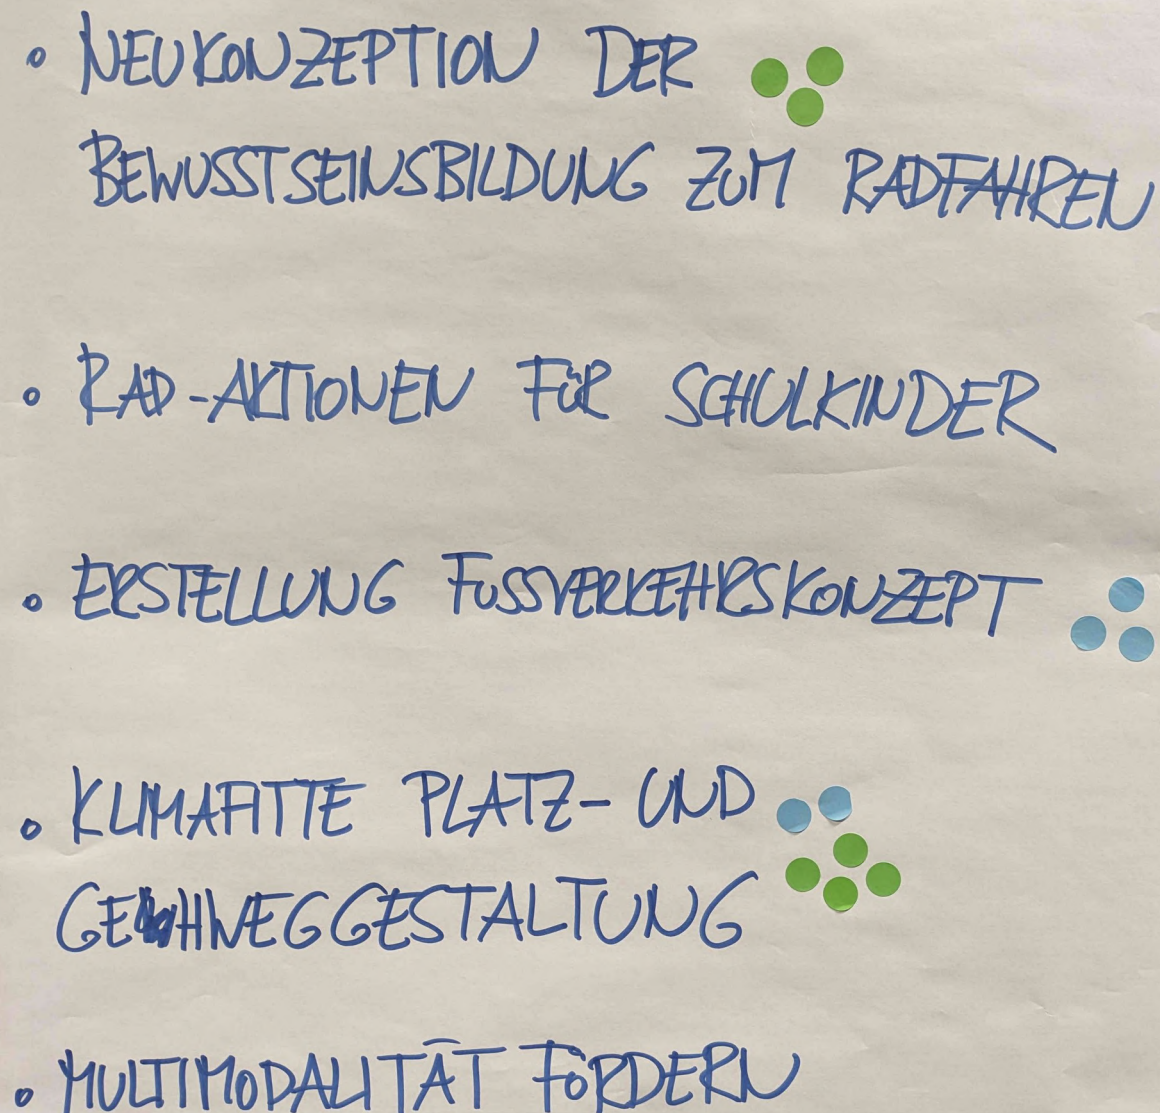 • NEUKONZEPTION DER
BEWUSSTSEINSBILDUNG ZUM RADFAHREN
• RAD-AKTIONEN FÜR SCHULKINDER
• ERSTELLUNG FUSSVERKEHRSKONZEPT
• KLIMAFITTE PLATZ- UND
GEHWEGGESTALTUNG
• MULTIMODALITÄT FÖRDERN